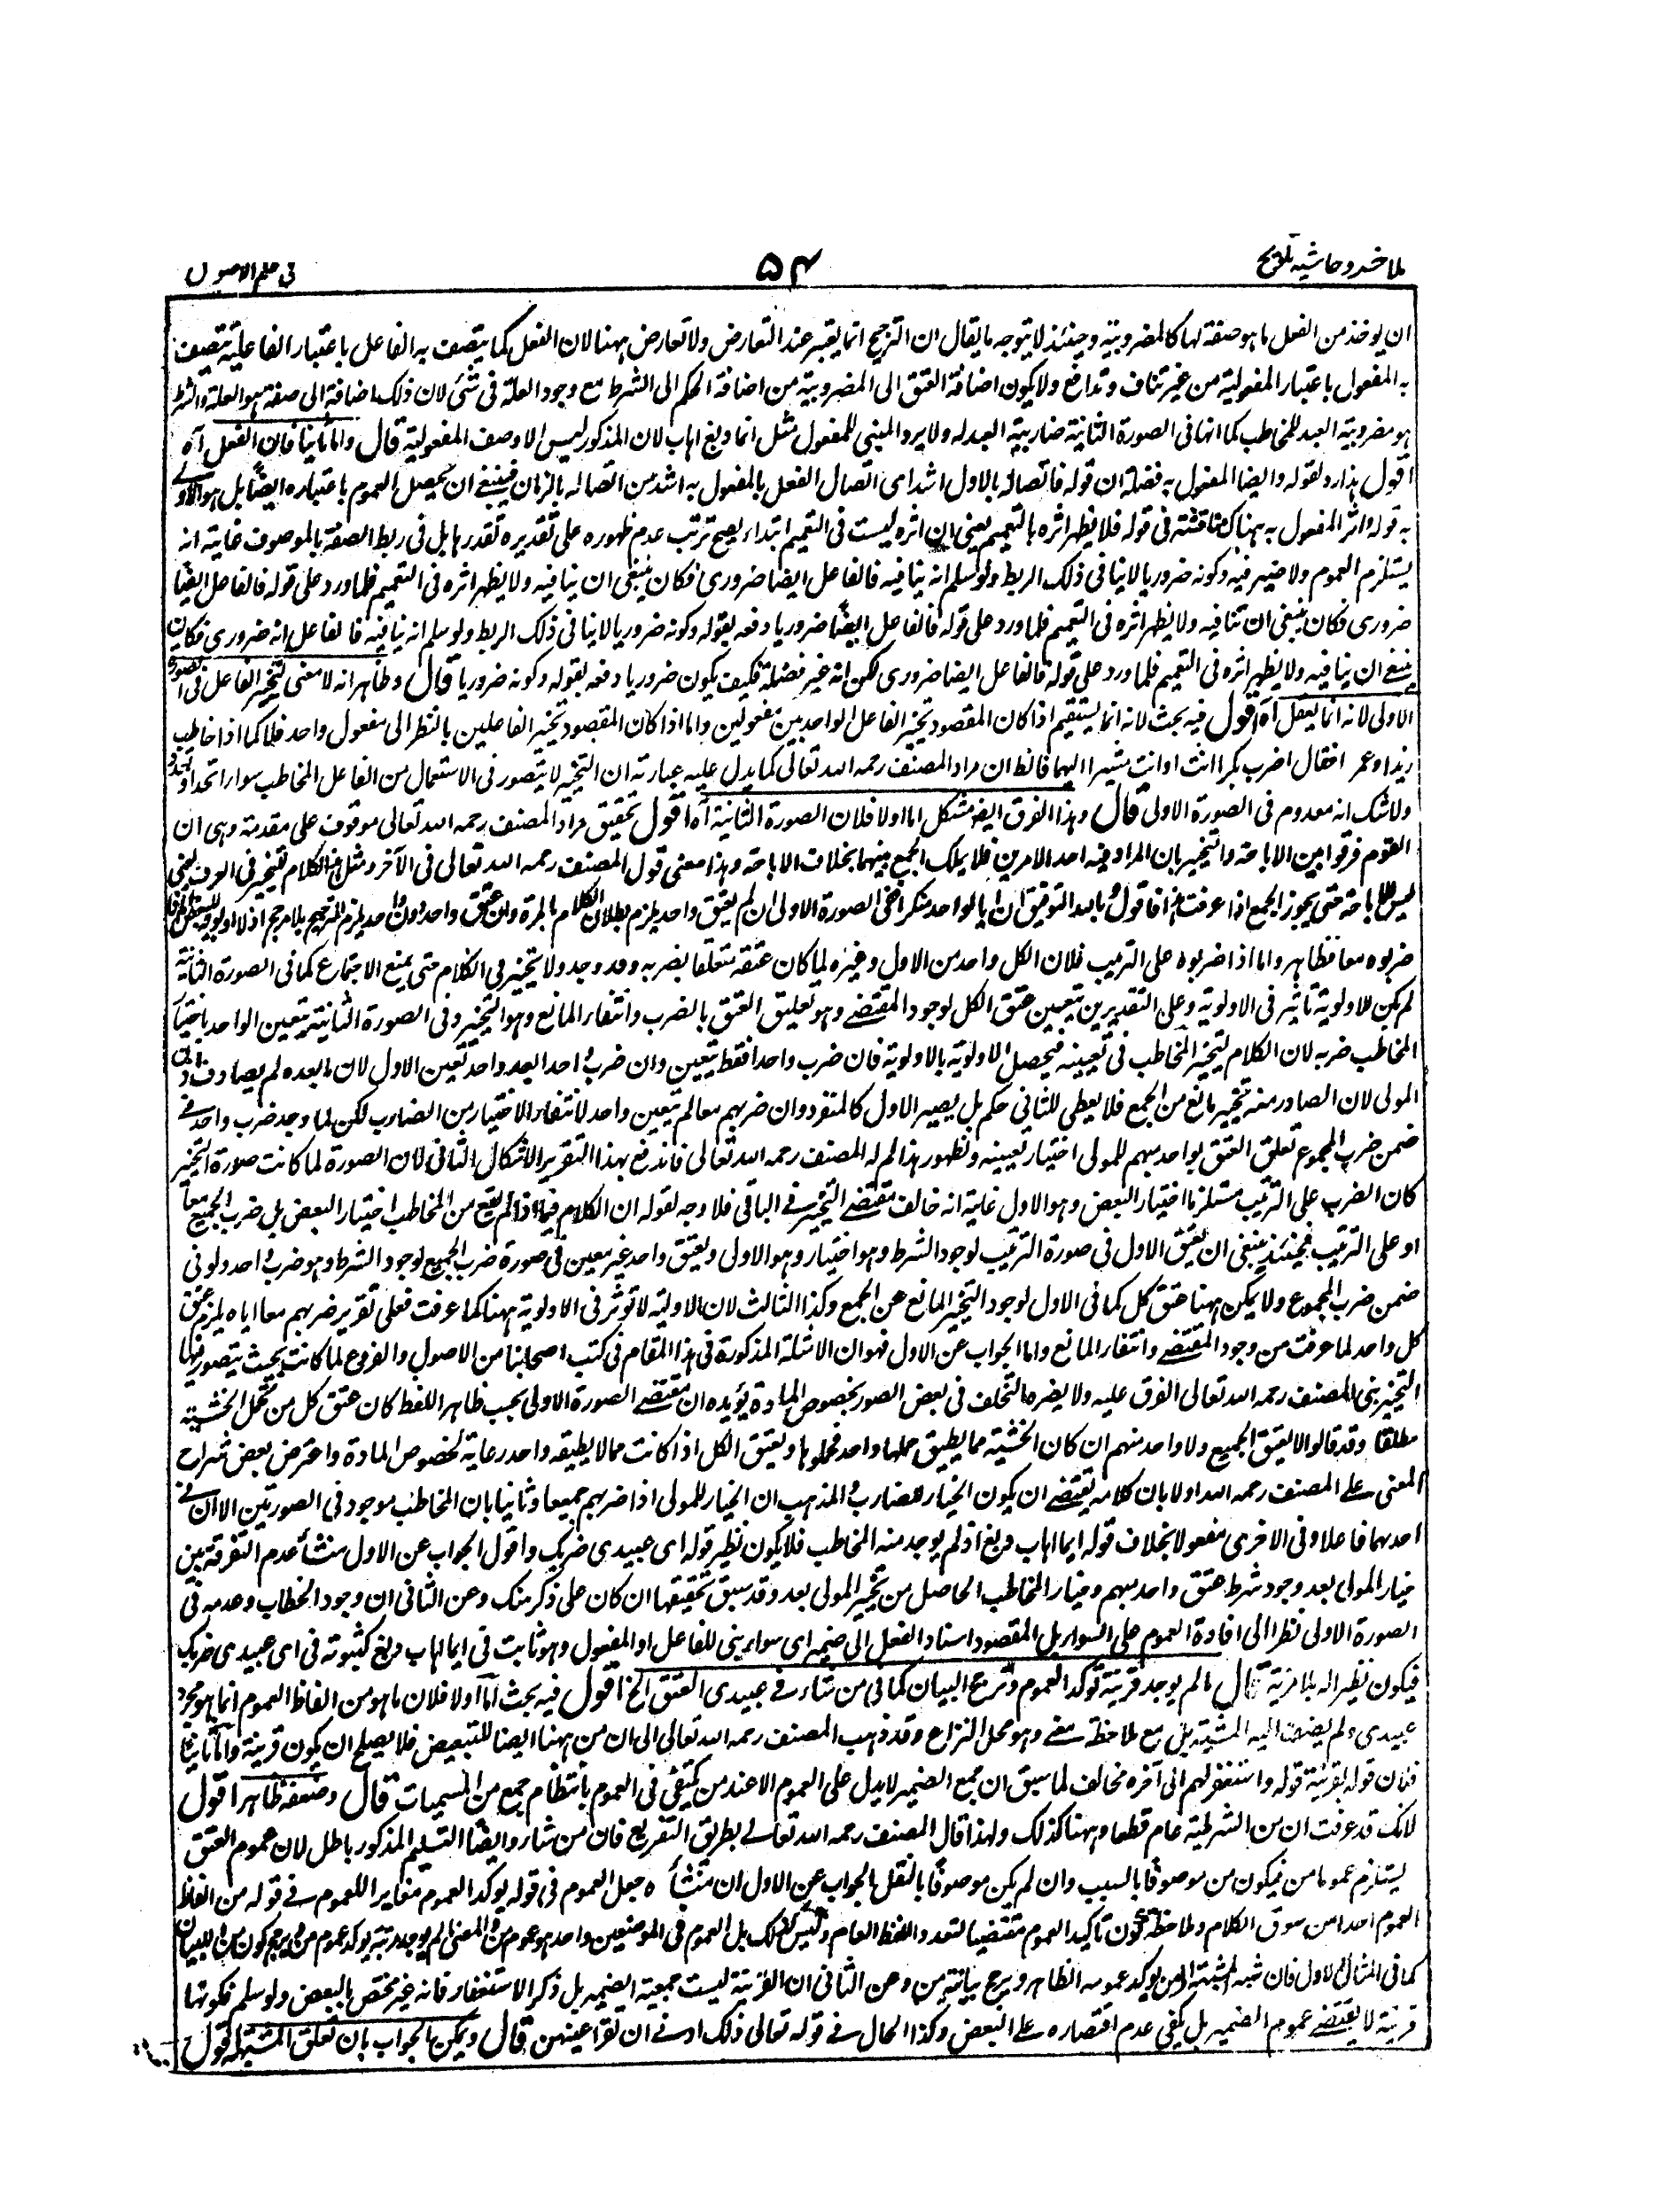 ملا خسرو حاشیه تلویح
۵۴
فی علم الاصول
ان یوخذ من الفعل ما هو صفة لها کالمضروبیة وحینئذ لا یتوجه ما یقال ان الترجیح انما یعتبر عند التعارض ولا تعارض ههنا لان الفعل کما یتصف به الفاعل باعتبار الفاعلیة یتصف
به المفعول باعتبار المفعولیة من غیر تناف وتدافع ولا یکون اضافة العتق الی المضروبیة من اضافة الحکم الی الشرط مع وجود العلة فی شئ لان ذلک اضافة الی صفة هو العلة والشرط
هو مضروبیة العبد للمخاطب کما انها فی الصورة الثانیة ضاربیة العبد له ولا یرد المبنی للمفعول مثل انما دبغ اهاب لان المذکور لیس الا وصف المفعولیة قال واما ثانیا فلان الفعل آه
اقول هذا رد لقوله وایضا المفعول به فضلة ان قوله فاتصاله بالاول اشد ای اتصال الفعل بالمفعول به اشد من اتصاله بالزمان فینبغی ان یحصل العموم باعتباره ایضا بل هو الاولی
به قوله واثر المفعول به ههناک مناقشة فی قوله فلا یظهر اثره بالتعمیم یعنی ان اثره لیست فی التعمیم ابتداء یصح ترتب عدم ظهوره علی تقدیره تقدرها بل فی ربط الصفة بالموصوف غایته انه
یستلزم العموم ولا ضیر فیه وکونه ضروریا لا ینافی ذلک الربط ولو سلم انه ینافیه فالفاعل ایضا ضروری فکان ینبغی ان ینافیه ولا یظهر اثره فی التعمیم فلما ورد علی قوله فالفاعل ایضا
ضروری فکان ینبغی ان تنافیه ولا یظهر اثره فی التعمیم فلما ورد علی قوله فالفاعل ایضا ضروریا دفعه بقوله وکونه ضروریا لا ینافی ذلک الربط ولو سلم انه ینافیه فالفاعل انه ضروری فکان
ینبغی ان ینافیه ولا یظهر اثره فی التعمیم فلما ورد علی قوله فالفاعل ایضا ضروری لکن انه غیر فضلة فکیف یکون ضروریا دفعه بقوله وکونه ضروریا قال وظاهر انه لا معنی لتخییر الفاعل فی الصورة
الاولی لانه انما یعقل آه اقول فیه بحث لانه انما یستقیم اذا کان المقصود تخییر الفاعل الواحد بین مفعولین واما اذا کان المقصود تخییر الفاعلین بالنظر الی مفعول واحد فلا کما اذا خاطب
زیدا وعمرا فقال اضرب بکرا انت او انت مشیرا الیهما فالظ ان مراد المصنف رحمه الله تعالی کما یدل علیه عبارته ان التخییر لا یتصور فی الاستعمال من الفاعل المخاطب سواء اتحد او تعدد
ولا شک انه معدوم فی الصورة الاولی قال وهذا الفرق ایضا مشکل اما اولا فلان الصورة الثانیة آه اقول تحقیق مراد المصنف رحمه الله تعالی موقوف علی مقدمة وهی ان
القوم فرقوا بین الاباحة والتخییر بان المراد فیه احد الامرین فلا یملک الجمع بینهما بخلاف الاباحة وهذا معنی قول المصنف رحمه الله تعالی فی الآخر ومثل هذا الکلام للتخییر فی العرف یعنی
لیس للاباحة حتی یجوز الجمع اذا عرفت هذا فاقول وبالله التوفیق ان ایا لواحد منکر ففی الصورة الاولی ان لم یعتق واحد یلزم بطلان الکلام بالمرة وان عتق واحد دون واحد یلزم الترجیح بلا مرجح اذ لا اولویة للبعض
ضربوه معا فظاهر واما اذا ضربوه علی الترتیب فلان الکل واحد من الاول وغیره لما کان عتقه متعلقا بضربه وقد وجد ولا تخییر فی الکلام حتی یمنع الاجتماع کما فی الصورة الثانیة
لم یکن للاولویة تاثیر فی الاولویة وعلی التقدیرین یتعین عتق الکل لوجود المقتضی وهو تعلیق العتق بالضرب وانتفاء المانع وهو التخییر وفی الصورة الثانیة یتعین الواحد باختیار
المخاطب ضربه لان الکلام لتخییر المخاطب فی تعیینه فیحصل الاولویة بالاولویة فان ضرب واحدا فقط یتعین وان ضرب واحدا بعد واحد تعین الاول لان ما بعده لم یصادف اذن
المولی لان الصادر منه تخییر مانع من الجمع فلا یعطی للثانی حکم بل یصیر الاول کالمنفرد وان ضربهم معا لم یتعین واحد لانتفاء الاختیار من الضارب لکن لما وجد ضرب واحد فی
ضمن ضرب المجموع تعلق العتق بواحد مبهم للمولی اختیار تعیینه ولظهور هذا لم له المصنف رحمه الله تعالی فاندفع بهذا التقریر الاشکال الثانی لان الصورة لما کانت صورة التخییر
کان الضرب علی الترتیب مستلزما اختیار البعض وهو الاول غایته انه خالف مقتضی التخییر فی الباقی فلا وجه لقوله ان الکلام فیما اذا لم یقع من المخاطب اختیار البعض بل ضرب الجمیع معا
او علی الترتیب فحینئذ ینبغی ان یعتق الاول فی صورة الترتیب لوجود الشرط وهو اختیار وهو الاولی ویعتق واحد غیر معین فی صورة ضرب الجمیع لوجود الشرط وهو ضرب احد ولو فی
ضمن ضرب المجموع ولا یکن ههنا عتق کل کما فی الاول لوجود التخییر المانع عن الجمع وکذا الثالث لان الاولیة لا توثر فی الاولویة ههنا کما عرفت فعلی تقریر ضربهم معا ایاه یلزم عتق
کل واحد لما عرفت من وجود المقتضی وانتفاء المانع واما الجواب عن الاول فهو ان الامثلة المذکورة فی هذا المقام فی کتب اصحابنا من الاصول والفروع لما کانت بحیث یتصور فیها
التخییر بنی المصنف رحمه الله تعالی الفرق علیه ولا یضره التخلف فی بعض الصور بخصوص المادة یؤیده ان مقتضی الصورة الاولی بحسب ظاهر اللفظ کان عتق کل من حمل الخشبة
مطلقا وقد قالوا لا یعتق الجمیع ولا واحد منهم ان کان الخشبة مما یطیق حملها واحد فحملوها ویعتق الکل اذا کانت مما لا یطیقه واحد رعایة لخصوص المادة واعترض بعض شراح
المغنی علی المصنف رحمه الله اولا بان کلامه یقتضی ان یکون الخیار للضارب والمذهب ان الخیار للمولی اذا ضربهم جمیعا وثانیا بان المخاطب موجود فی الصورتین الا ان فی
احدهما فاعلا وفی الاخری مفعولا بخلاف قوله ایما اهاب دبغ اذ لم یوجد منه المخاطب فلا یکون نظیر قوله ای عبیدی ضربک واقول الجواب عن الاول منشأ عدم التفرقة بین
خیار المولی بعد وجود شرط عتق واحد مبهم وخیار المخاطب الحاصل من تخییر المولی بعد وقد سبق تحقیقها ان کان علی ذکر منک وعن الثانی ان وجود الخطاب وعدمه فی
الصورة الاولی نظرا الی افادة العموم علی السواء بل المقصود اسناد الفعل الی ضمیر ای سواء بنی للفاعل او المفعول وهو ثابت فی ایما اهاب دبغ کثبوته فی ای عبیدی ضربک
فیکون نظیرا له بلا مزیة قال ما لم یوجد قرینة توکد العموم وترجح البیان کما فی من شاء فی عبیدی العتق الخ اقول فیه بحث اما اولا فلان ما هو من الفاظ العموم انما هو مجرد
عبیدی ولم یضف الیه المشیة بل مع ملاحظة معنی وهو محل النزاع وقد ذهب المصنف رحمه الله تعالی الی ان من ههنا ایضا للتبعیض فلا یصلح ان یکون قرینة واما ثانیا
فلان قوله بقرینة قوله واستغفر لهم الی آخره مخالف لما سبق ان جمع الضمیر لا یدل علی العموم الا عند من یکتفی فی العموم بانتظام جمع من المسمیات قال وضعفه ظاهر اقول
لانک قد عرفت ان من الشرطیة عام قطعا وههنا کذلک ولهذا قال المصنف رحمه الله تعالی بطریق التفریع فان من شاء وایضا التسلیم المذکور باطل لان عموم العتق
یستلزم عموما من فیکون من موصوفا بالسبب وان لم یکن موصوفا بالنقل الجواب عن الاول ان منشأه جعل العموم فی قوله یوکد العموم مغایرا للعموم فی قوله من الفاظ
العموم احدا من سوق الکلام وملاحظة کون تاکید العموم مقتضیا لتعدد اللفظ العام ولیس کذلک بل العموم فی الموضعین واحد هو عموم من والمعنی لم یوجد قرینة یوکد عموم من ویرجح کون من للبیان
کما فی المثال الاول فان شبه المشیة الی من یوکد عمومه الظاهر ویرجح بیانیة من وعن الثانی ان القرینة لیست جمعیة الضمیر بل ذکر الاستغفار فانه غیر مختص بالبعض ولو سلم فکونها
قرینة لا یقتضی عموم الضمیر بل یکفی عدم اقتصاره علی البعض وکذا الحال فی قوله تعالی ذلک ادنی ان تقر اعینهن قال ویمکن الجواب بان تعلق المشیة اقول